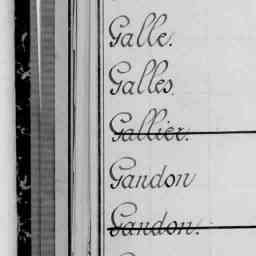 Galle.
Galles.
Gallier.
Gandon
Gandon.